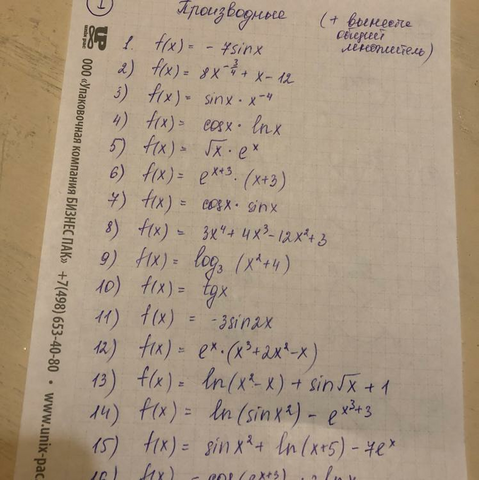 1
Производные
(+ вынести
общий
множитель)
1. f(x) = - 7sinx
2) f(x) = 8x^{-3/4} + x - 12
3) f(x) = sinx · x^{-4}
4) f(x) = cosx · lnx
5) f(x) = √x · e^x
6) f(x) = e^{x+3} · (x+3)
7) f(x) = cosx · sinx
8) f(x) = 3x^4 + 4x^3 - 12x^2 + 3
9) f(x) = log_3 (x^2 + 4)
10) f(x) = tgx
11) f(x) = -3sin2x
12) f(x) = e^x · (x^3 + 2x^2 - x)
13) f(x) = ln(x^2 - x) + sin√x + 1
14) f(x) = ln(sinx^2) - e^{x^3+3}
15) f(x) = sinx^2 + ln(x+5) - 7e^x
16) f(x) = cos(
UP
ООО «Упаковочная компания БИЗНЕСПАК» +7(498) 653-40-80 • www.unix-pac